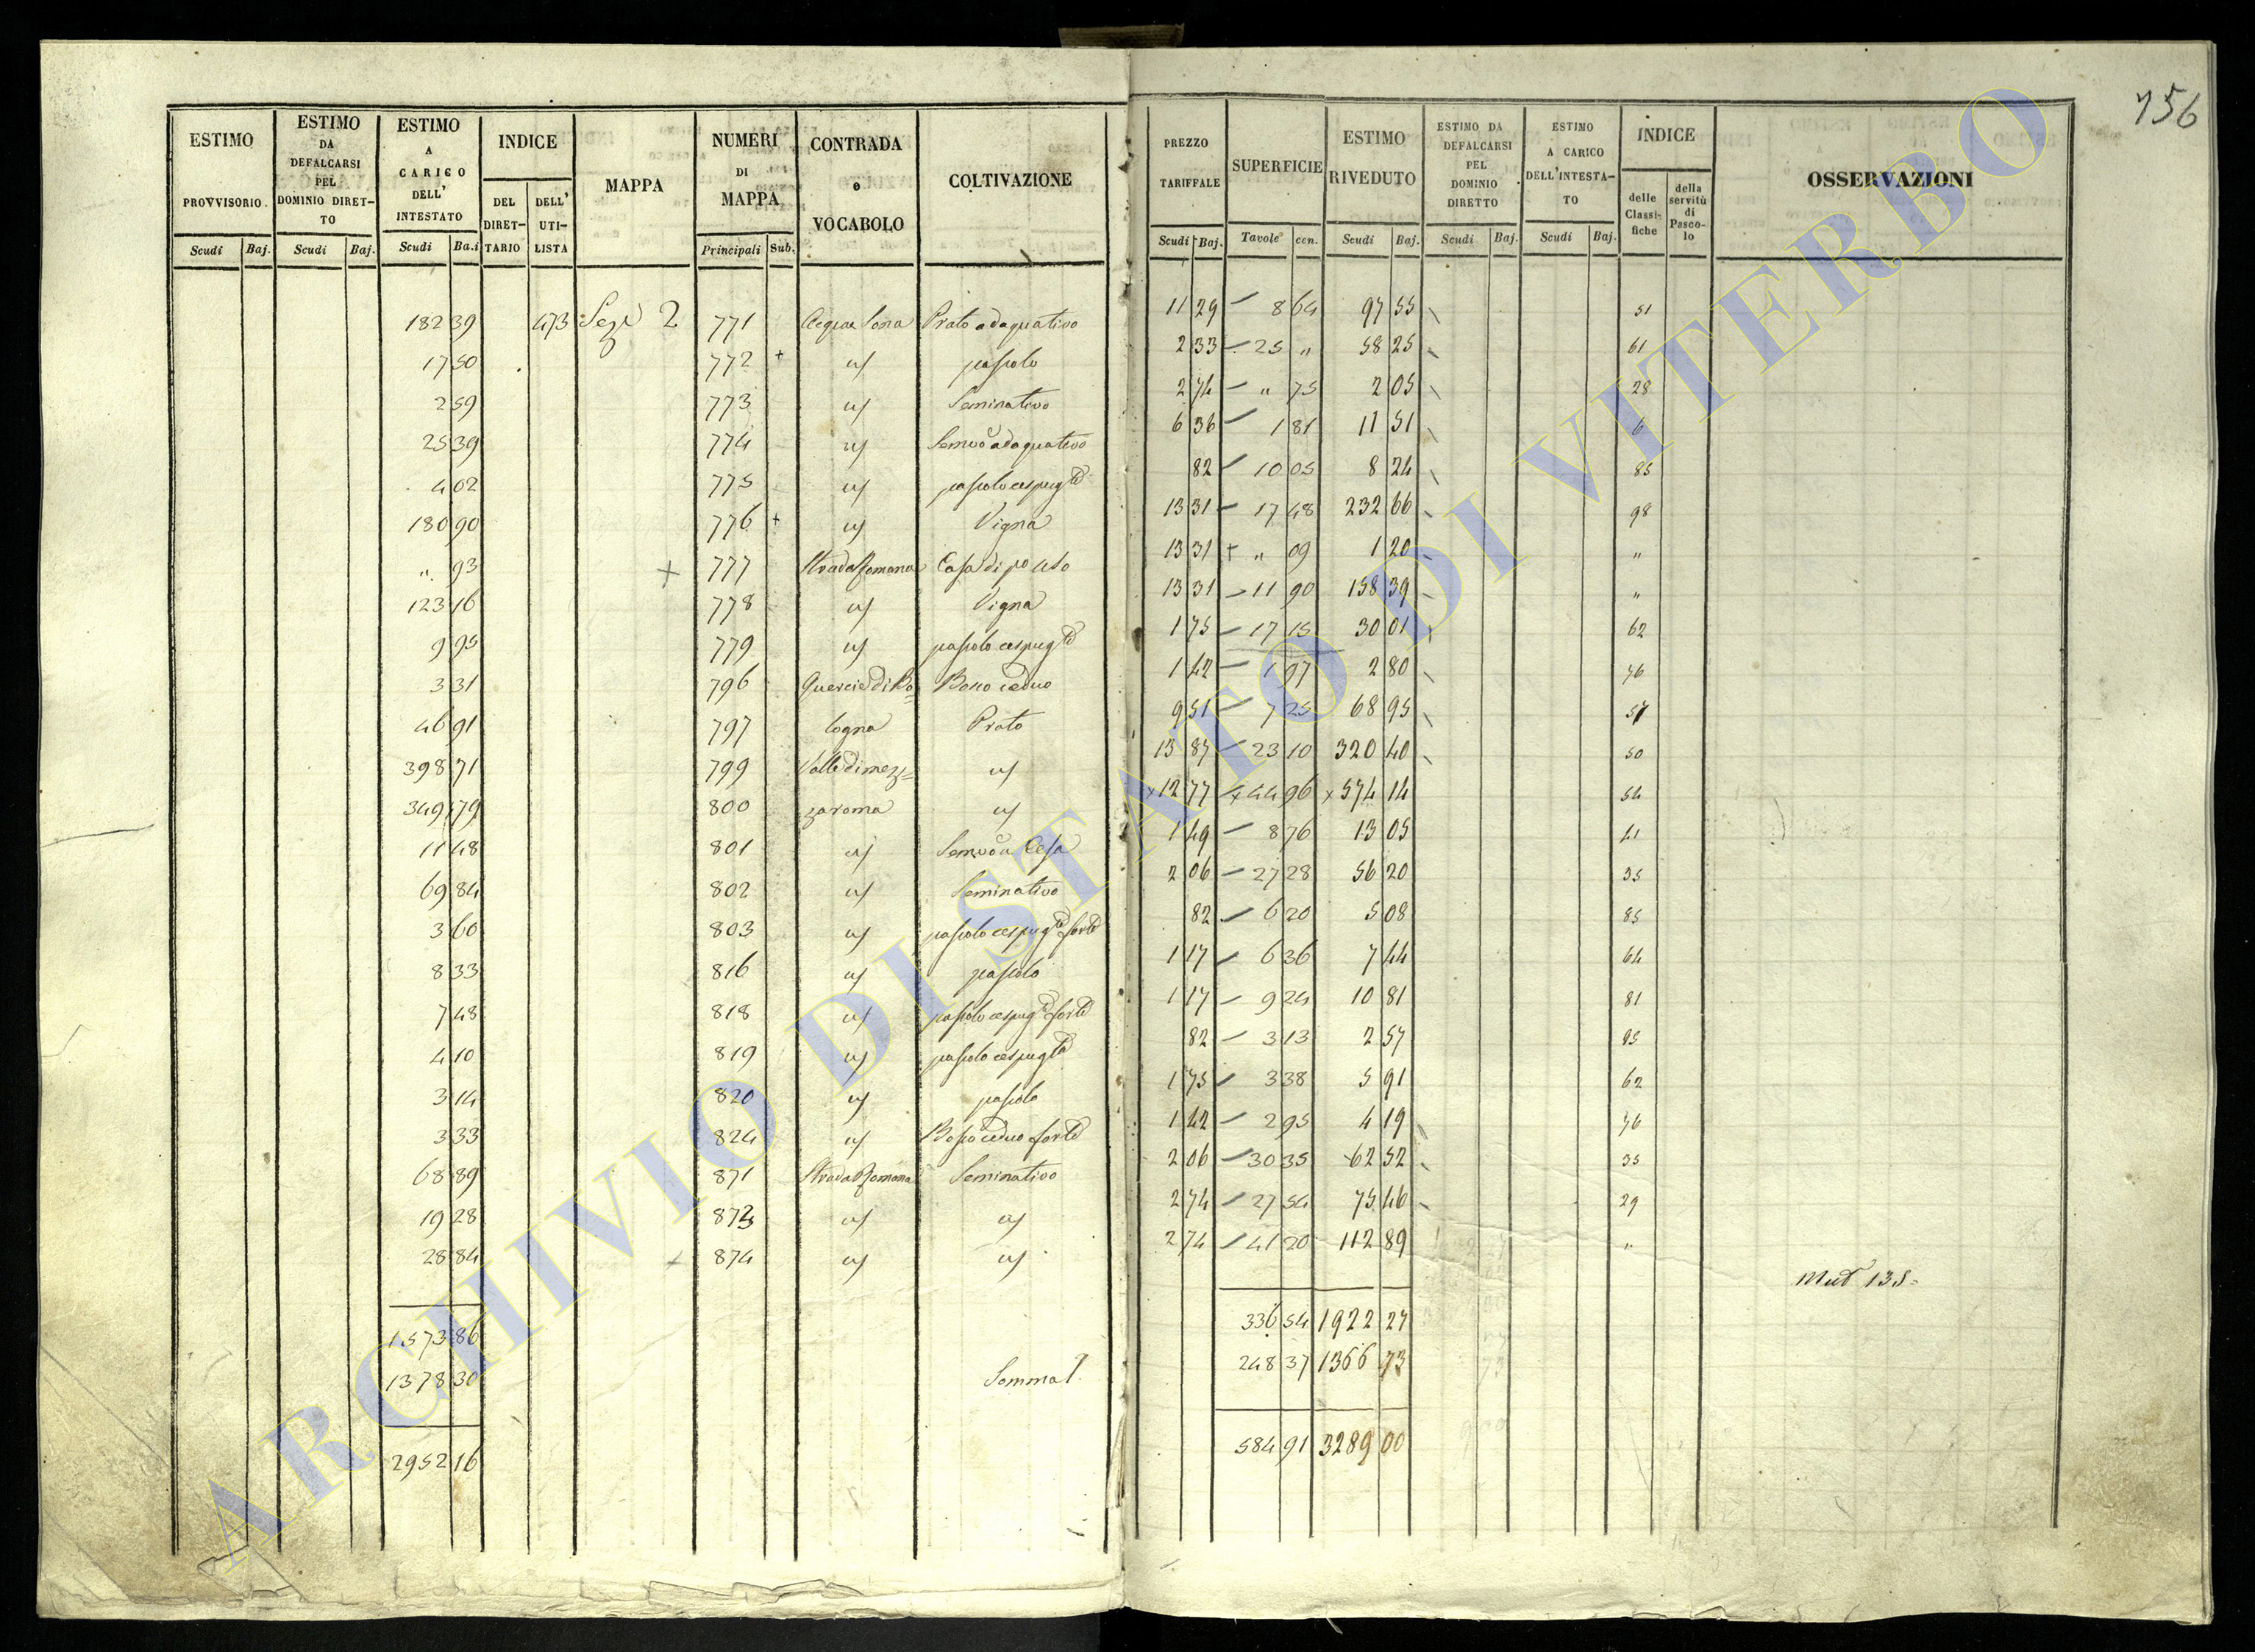 756
ESTIMO PROVVISORIO. Scudi Baj. | ESTIMO DA DEFALCARSI PEL DOMINIO DIRETTO Scudi Baj. | ESTIMO A CARICO DELL' INTESTATO Scudi Ba.i | INDICE DEL DIRETTARIO DELL' UTILISTA | MAPPA | NUMERI DI MAPPA Principali Sub. | CONTRADA o VOCABOLO | COLTIVAZIONE | PREZZO TARIFFALE Scudi Baj. | SUPERFICIE Tavole cen. | ESTIMO RIVEDUTO Scudi Baj. | ESTIMO DA DEFALCARSI PEL DOMINIO DIRETTO Scudi Baj. | ESTIMO A CARICO DELL'INTESTATO Scudi Baj. | INDICE delle Classifiche della servitù di Pascolo | OSSERVAZIONI
182 39 473 Sezе 2 771 Acqua Sona Prato adaquativo 11 29 8 64 97 55 51
17 50 772 + id pascolo 2 33 25 " 58 25 61
2 59 773 id Seminativo 2 74 " 75 2 05 28
25 39 774 id Semivo adaquativo 6 36 1 81 11 51 6
4 02 775 id pascolo cespugto 82 10 05 8 24 85
180 90 776 + id Vigna 13 31 17 48 232 66 98
" 93 + 777 Strada Romana Casa di po uso 13 31 + " 09 1 20 "
123 16 778 id Vigna 13 31 11 90 158 39 "
9 95 779 id pascolo cespugto 1 75 17 15 30 01 62
3 31 796 Quercie di Bo= Bosco ceduo 1 42 1 97 2 80 76
46 91 797 logna Prato 9 51 7 25 68 95 57
398 71 799 Valle di mez= id 13 87 23 10 320 40 50
349 79 800 zaroma id × 12 77 × 44 96 × 574 14 54
11 48 801 id Semivo a Cesa 1 49 8 76 13 05 41
69 84 802 id Seminativo 2 06 27 28 56 20 35
3 60 803 id pascolo cespugto forte 82 6 20 5 08 85
8 33 816 id pascolo 1 17 6 36 7 44 64
7 48 818 id pascolo cespugto forte 1 17 9 24 10 81 81
4 10 819 id pascolo cespugto 82 3 13 2 57 85
3 14 820 id pascolo 1 75 3 38 5 91 62
3 33 824 id Bosco ceduo forte 1 42 2 95 4 19 76
68 89 871 Strada Romana Seminativo 2 06 30 35 62 52 35
19 28 873 id id 2 74 27 54 75 46 29
28 84 874 id id 2 74 41 20 112 89 "
Mut 135=
1573 86 336 54 1922 27
1378 30 Somma 248 37 1366 73
2952 16 584 91 3289 00
ARCHIVIO DI STATO DI VITERBO